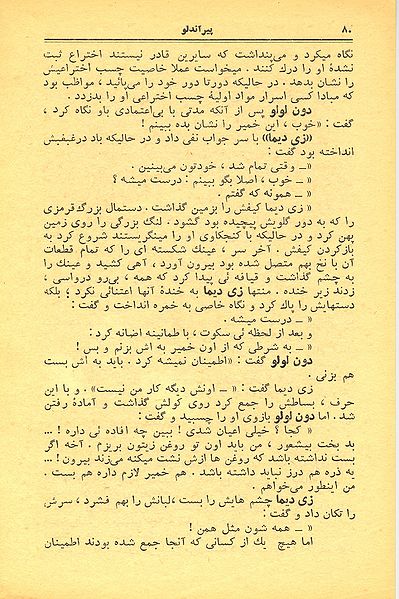 ۸۰
پیراندلو
نگاه میکرد و می‌پنداشت که سایرین قادر نیستند اختراع ثبت
نشدهٔ او را درك كنند . میخواست عملا خاصیت چسب اختراعیش
را نشان بدهد . در حالیکه دورتا دور خود را می‌پائید ، مواظب بود
که مبادا کسی اسرار مواد اولیهٔ چسب اختراعی او را بدزدد .
دون لولو پس از آنکه مدتی با بی‌اعتمادی باو نگاه کرد ،
گفت : «خوب ، این خمیر را نشان بده ببینم !
«زی دیما» با سر جواب نفی داد و در حالیکه باد درغبغبش
انداخته بود گفت :
«ـ وقتی تمام شد ، خودتون می‌بینین .
« ـ خوب ، اصلا بگو ببینم : درست میشه ؟
« ـ همونه که گفتم .
« زی دیما کیفش را بزمین گذاشت . دستمال بزرگ قرمزی
را که به دور گلویش پیچیده بود گشود . لنگ بزرگی را روی زمین
پهن کرد و در حالیکه با کنجکاوی او را مینگریستند شروع کرد به
بازکردن کیفش . آخر سر ، عینك شکسته ای را که تمام قطعات
آن با نخ بهم متصل شده بود بیرون آورد ، آهی کشید و عینك را
به چشم گذاشت و قیافه ئی پیدا کرد که همه ، بی‌رو درواسی ،
زدند زیر خنده . منتها زی دیما به خندهٔ آنها اعتنائی نکرد ؛ بلکه
دستهایش را پاك کرد و نگاه خاصی به خمره انداخت و گفت :
« ـ درست میشه .
و بعد از لحظه ئی سکوت ، با طمانینه اضافه کرد :
« ـ به شرطی که از اون خمیر به اش بزنم و بس !
دون لولو گفت : «اطمینان نمیشه کرد . باید به اش بست
هم بزنی .
زی دیما گفت : « ـ اونش دیگه کار من نیست» . و با این
حرف ، بساطش را جمع کرد روی کولش گذاشت و آمادهٔ رفتن
شد . اما دون لولو بازوی او را چسبید و گفت :
« کجا ؟ خیلی اعیان شدی ! ببین چه افاده ئی داره ! ...
بد بخت بیشعور ، من باید اون تو روغن زیتون بریزم . آخه اگر
بست نداشته باشد که روغن ها ازش نشت میکنه می‌زند بیرون ! ...
یه ذره هم درز نباید داشته باشد . هم خمیر لازم داره هم بست .
من اینطور می‌خواهم .
زی دیما چشم هایش را بست ، لبانش را بهم فشرد ، سرش
را تکان داد و گفت :
« ـ همه شون مثل همن !
اما هیچ یك از کسانی که آنجا جمع شده بودند اطمینان